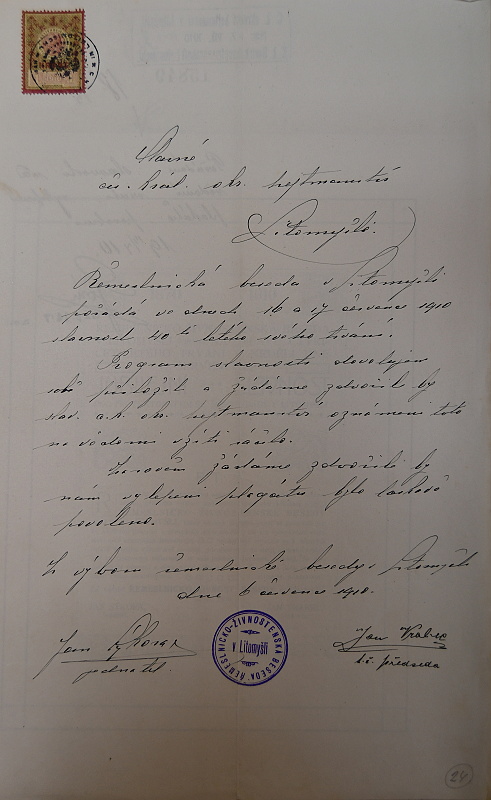 Slavné
cís. král. okr. hejtmanství
Litomyšli.
Řemeslnická beseda v Litomyšli
pořádá ve dnech 16 a 17 července 1910
slavnost 40 ti letého svého trvání.
Program slavnosti dovolujem
sobě přiložit a žádáme zdvořile by
slav. c. k. okr. hejtmanství oznámení toto
na vědomí vzíti ráčilo.
Zároveň žádáme zdvořile by
nám vylepení plagátu bylo laskavě
povoleno.
Z výboru řemeslnické besedy v Litomyšli
dne 6 července 1910.
Jan
jednatel
ŘEMESLNICKO-ŽIVNOSTENSKÁ BESEDA
v Litomyšli
Jan Vrabec
t. č. předseda
24